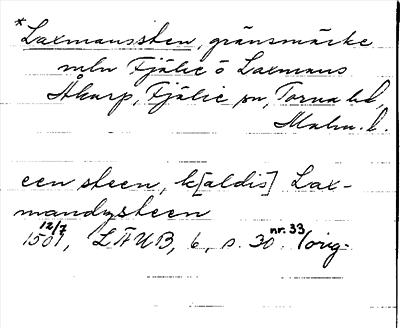 *Laxmanssten, gränsmärke
mln Fjälie o Laxmans
Åkarp, Fjälie sn, Torna hd,
Malm. l.
een steen, k[aldis] Lax-
mandzsteen
12/7 1501, LÄUB, 6, s. 30. nr. 33 (orig.